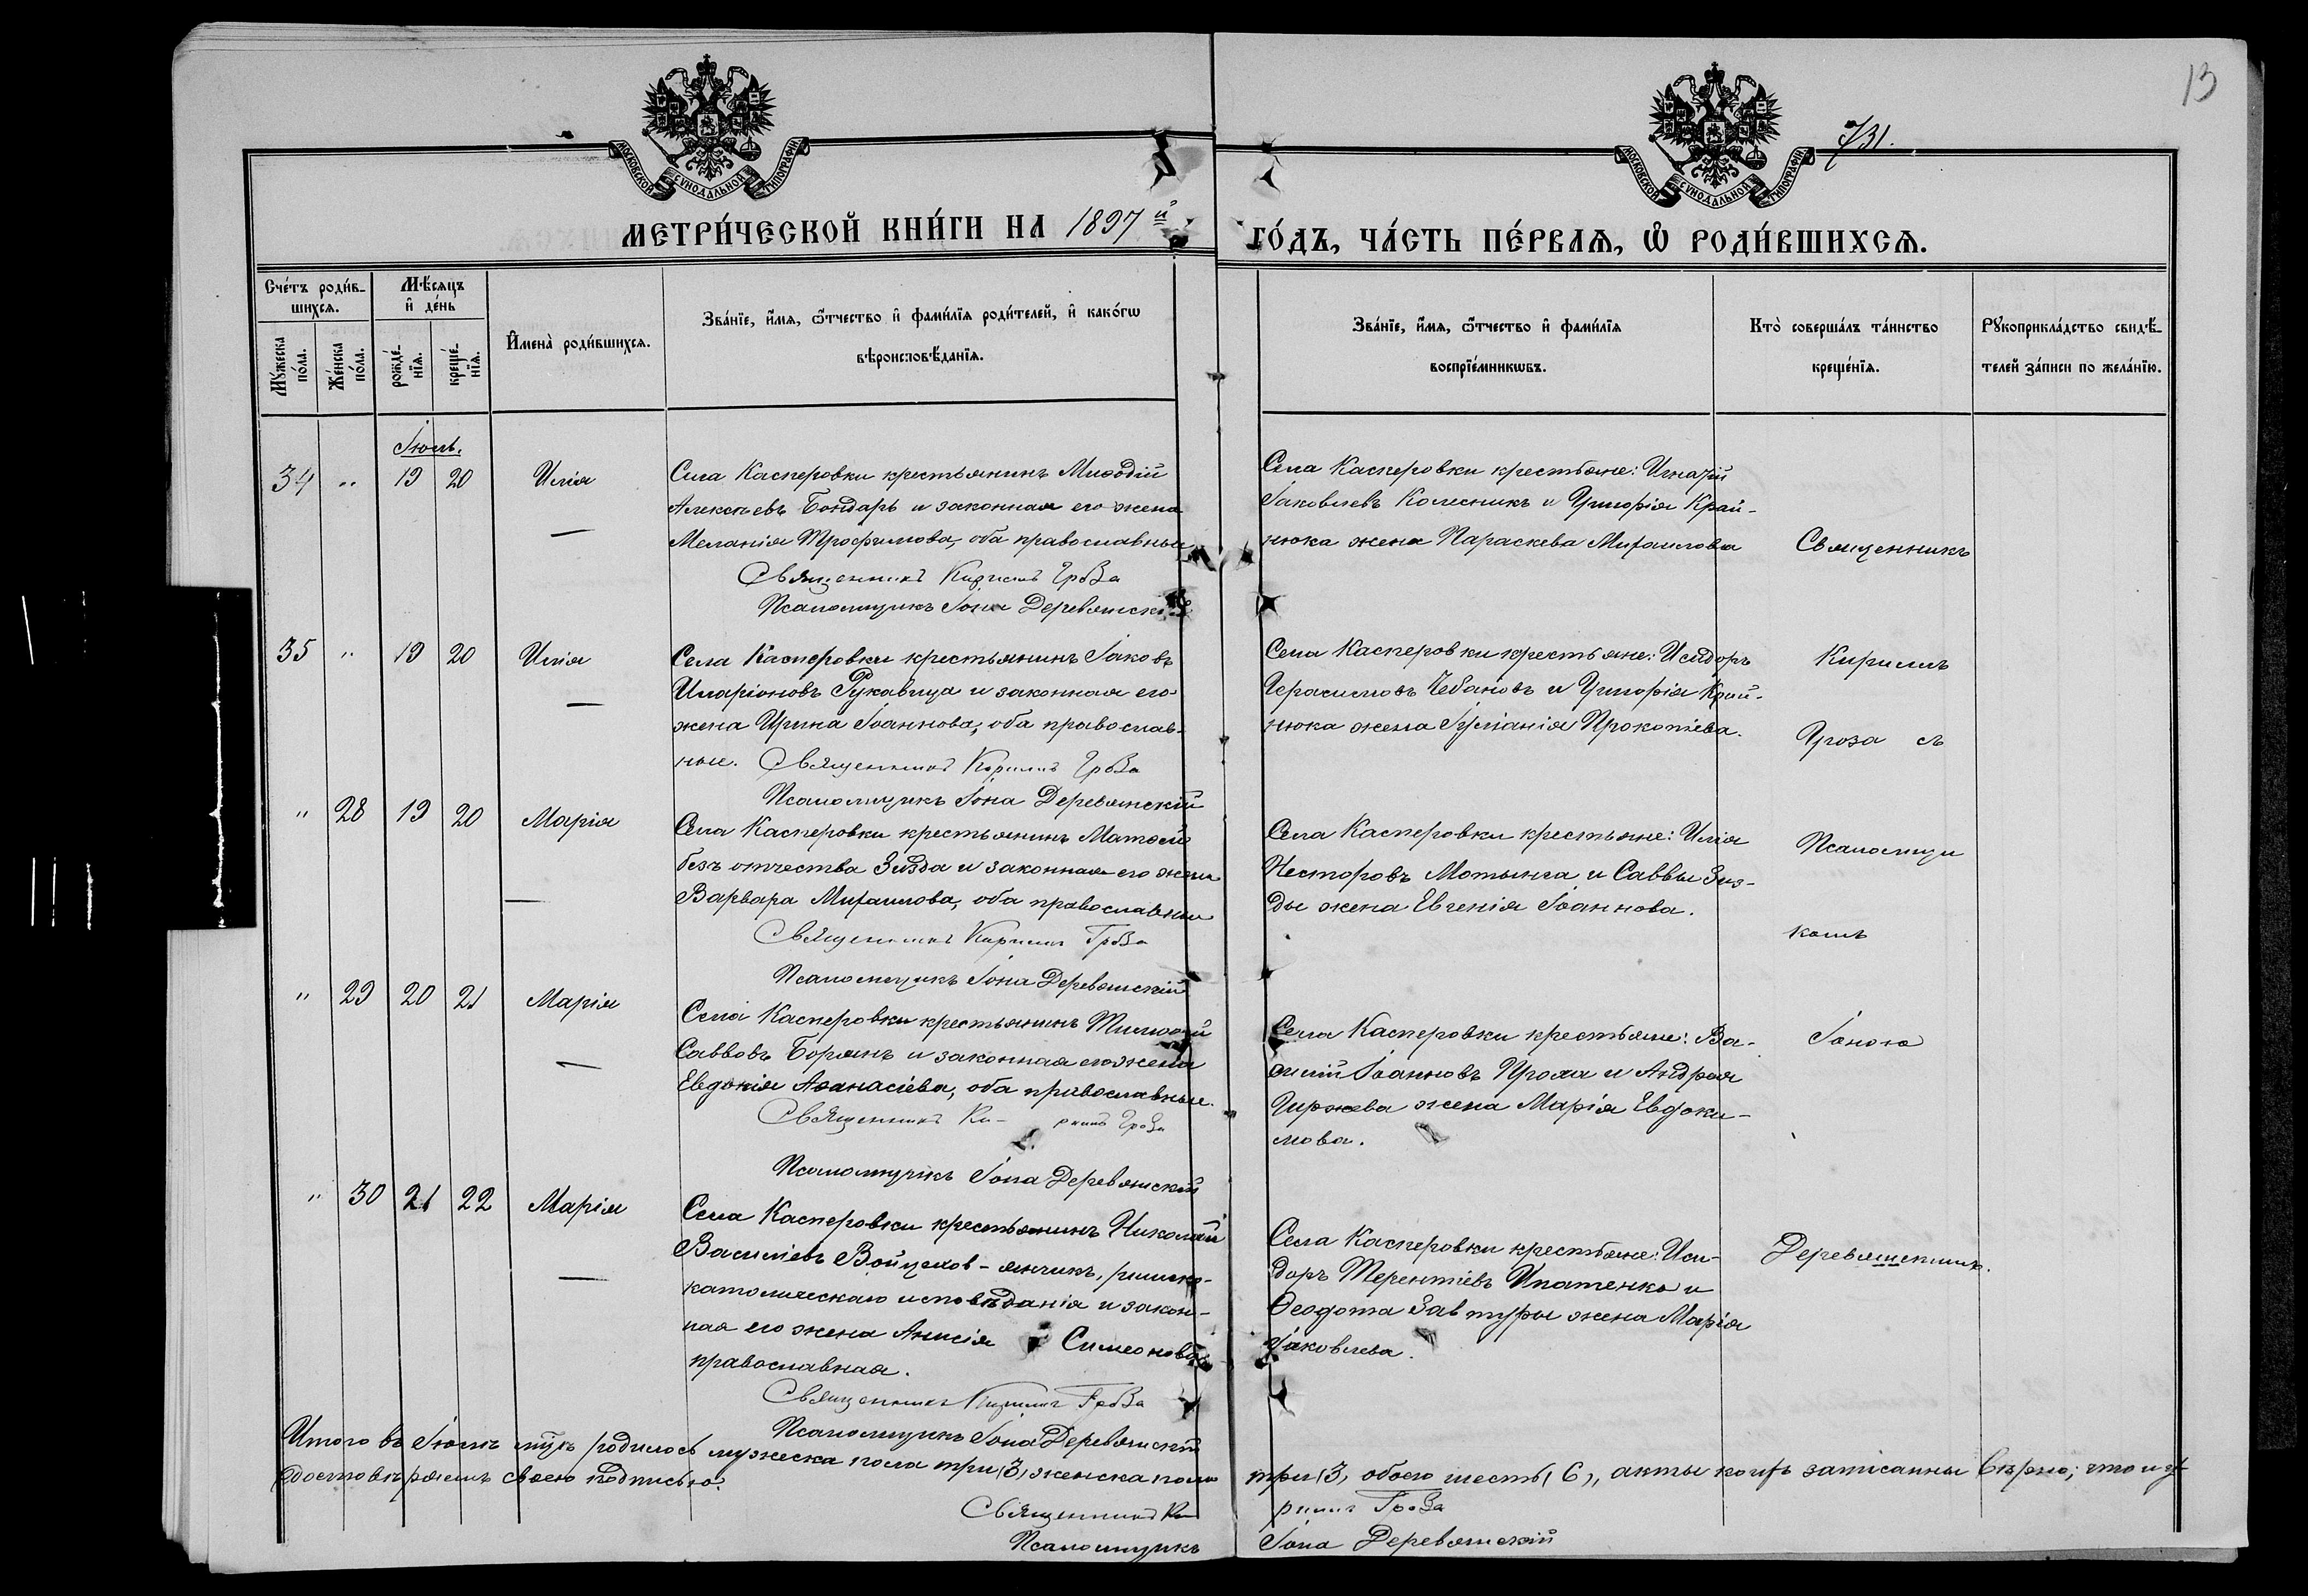 13
731.
МОСКОВСКОЙ СѴНОДАЛЬНОЙ ТИПОГРАФІИ
МОСКОВСКОЙ СѴНОДАЛЬНОЙ ТИПОГРАФІИ
МЕТРИ́ЧЕСКОЙ КНИ́ГИ НА 1897й
ГО́ДЪ, ЧА́СТЬ ПЕ́РВАѦ, Ѡ҆ РОДИ́ВШИХСѦ.
Сче́тъ роди́в-
шихсѧ.
Мꙋ́жеска
по́ла.
Же́нска
по́ла.
Мѣ́сѧцъ
и҆ де́нь
рожде́-
нїѧ.
креще́-
нїѧ.
И҆мена̀ роди́вшихсѧ.
Зва́нїе, и҆́мѧ, ѻ҆́тчество и҆ фами́лїѧ роди́телей, и҆ како́гѡ
вѣроисповѣ́данїѧ.
Зва́нїе, и҆́мѧ, ѻ҆́тчество и҆ фами́лїѧ
воспрїе́мникѡвъ.
Кто̀ соверша́лъ та́инство
креще́нїѧ.
Рꙋкоприкла́дство свидѣ́-
телей за́писи по жела́нїю.
Іюль.
34 " 19 20 Илія
Села Касперовки крестьянинъ Миѳодій
Алексѣевъ Бондарь и законная его жена
Меланія Трофимова, оба православные
Священникъ Кирилъ Гроза
Псаломщикъ Іона Деревянскій
Села Касперовки крестьяне: Игнатій
Іаковлевъ Колесникъ и Григорія Край-
нюка жена Параскева Михаилова
Священникъ
35 " 19 20 Илія
Села Касперовки крестьянинъ Іаковъ
Иларіоновъ Рукавица и законная его
жена Ирина Іоаннова, оба православ-
ные. Священникъ Кирилъ Гроза
Псаломщикъ Іона Деревянскій
Села Касперовки крестьяне: Исидоръ
Герасимовъ Чебановъ и Григорія Край-
нюка жена Іуліанія Прокопіева.
Кирилъ
Гроза съ
" 28 19 20 Марія
Села Касперовки крестьянинъ Матѳей
безъ отчества Зизда и законная его жена
Варвара Михаилова, оба православные
Священникъ Кирилъ Гроза
Псаломщикъ Іона Деревянскій
Села Касперовки крестьяне: Илія
Несторовъ Мотынга и Саввы Зиз-
ды жена Евгенія Іоаннова.
Псаломщи
комъ
" 29 20 21 Марія
Села Касперовки крестьянинъ Тимоѳей
Саввовъ Борянъ и законная его жена
Евдокія Аѳанасіева, оба православные.
Священникъ Ки- рилъ Гроза
Псаломщикъ Іона Деревянскій
Села Касперовки крестьяне: Ва-
силій Іоанновъ и Андрея
Гиржева жена Марія Евдоки-
мова.
Іоною
" 30 21 22 Марія
Села Касперовки крестьянинъ Николай
Василіевъ Войцехов-янчикъ, римско-
католическаго исповѣданія и закон-
ная его жена Анисія Симеонова
православная.
Священникъ Кирилъ Гроза
Псаломщикъ Іона Деревянскій
Села Касперовки крестьяне: Иси-
доръ Терентіевъ Ипатенко и
Ѳеодота Завтуры жена Марія
Іаковлева.
Деревянскимъ.
Итого въ Іюлѣ м-цѣ родилось мужеска пола три (3) женска пола три (3) обоего шесть (6), акты коихъ записаны вѣрно; что и у-
достовѣряемъ своею подписью.
Священникъ Ки рилъ Гроза
Псаломщикъ Іона Деревянскій